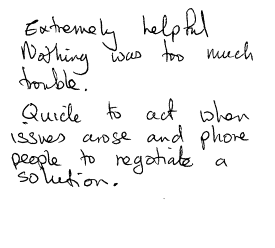 Extremely helpful
Nothing was too much
trouble.
Quick to act when
issues arose and phone
people to negotiate a
solution.